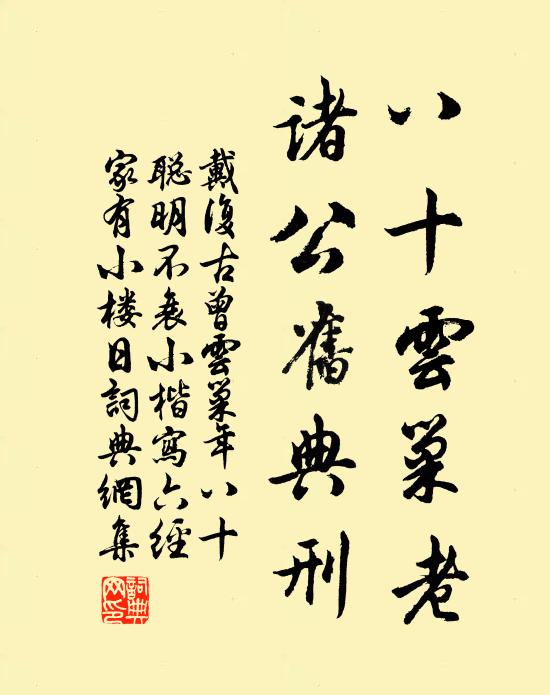 八十雲巢老
諸公舊典刑
戴復古曾雲巢年八十
聪明不衰小楷寫六經
家有小楼日詞典網集
詞典
网印